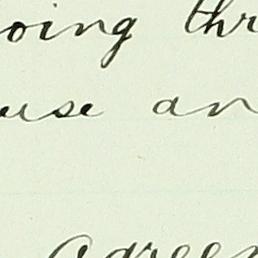 oing thr
use an
agreem